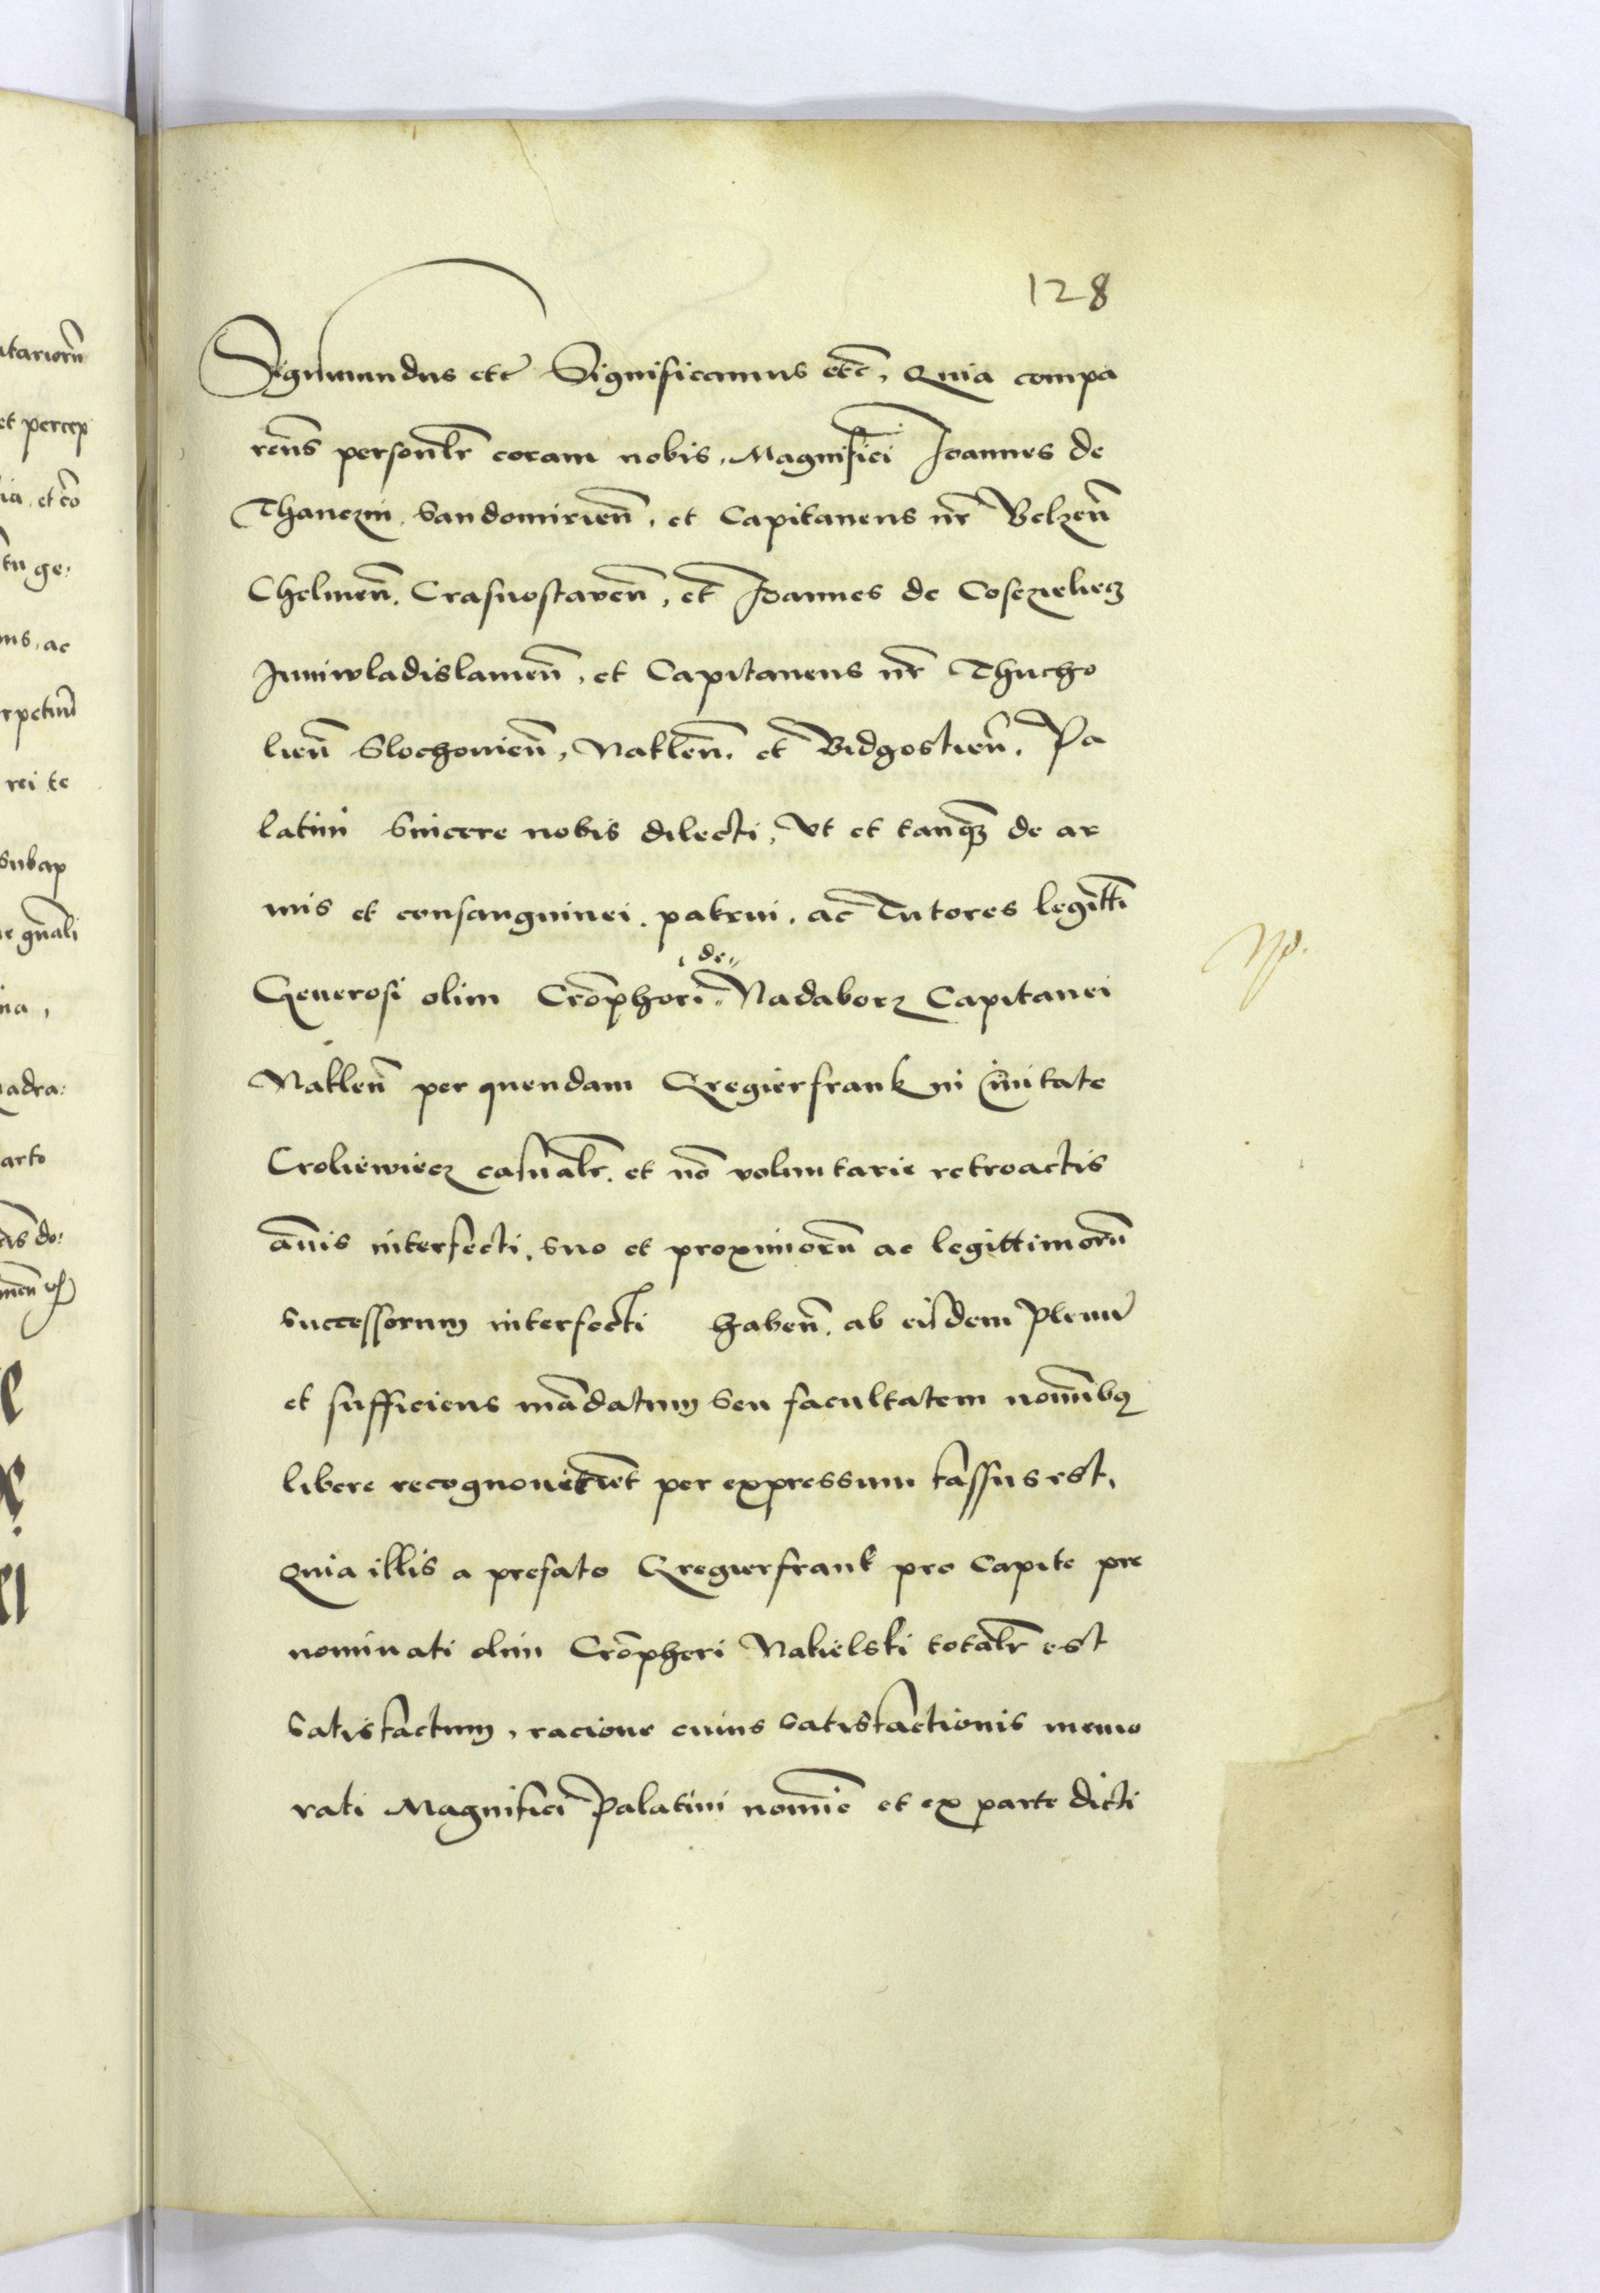 128
Sigismundus etc̄ Significamus etc̄, Quia compa
rens̄ personlr̄ coram nobis, Magnifici Ioannes de
Thanczin, Sandomirien̄, et Capitaneus nr̄ Belzen̄
Chelmen̄, Crasnostaven̄, et Ioannes de Coszczielecz
Iuniwladislauien̄, et Capitaneus nr̄ Thucho
lien̄ Slochouien̄, Naklen̄, et Bidgostien̄, Pa
latini Sincere nobis dilecti, Vt et tanqȝ de ar
mis et consanguinei, patrui, ac Tutores legitti
Generosi olim Crōphori de Nadaborz Capitanei
Naklen̄ per quendam Gregierfrank in Ciuitate
Croliewiecz casualr̄, et nō voluntarie retroactis
annis interfecti, suo et proximorū ac legittimorū
successorum interfecti haben̄, ab eisdem plenū
et sufficiens mādatum seu facultatem nominibꝯ
libere recognouit et per expressum fassus est,
Quia illis a prefato Gregierfrank pro Capite pre
nominati olim Crōpheri Nakielski totalr̄ est
satisfactum, racione cuius satisfactionis memo
rati Magnifici Palatini nomine et ex parte dicti
tariorū
et percep
ia, et cō
tu ge:
ns, ac
rpetuū
rei te
subap
e gn̄ali
nia,
adra:
arto